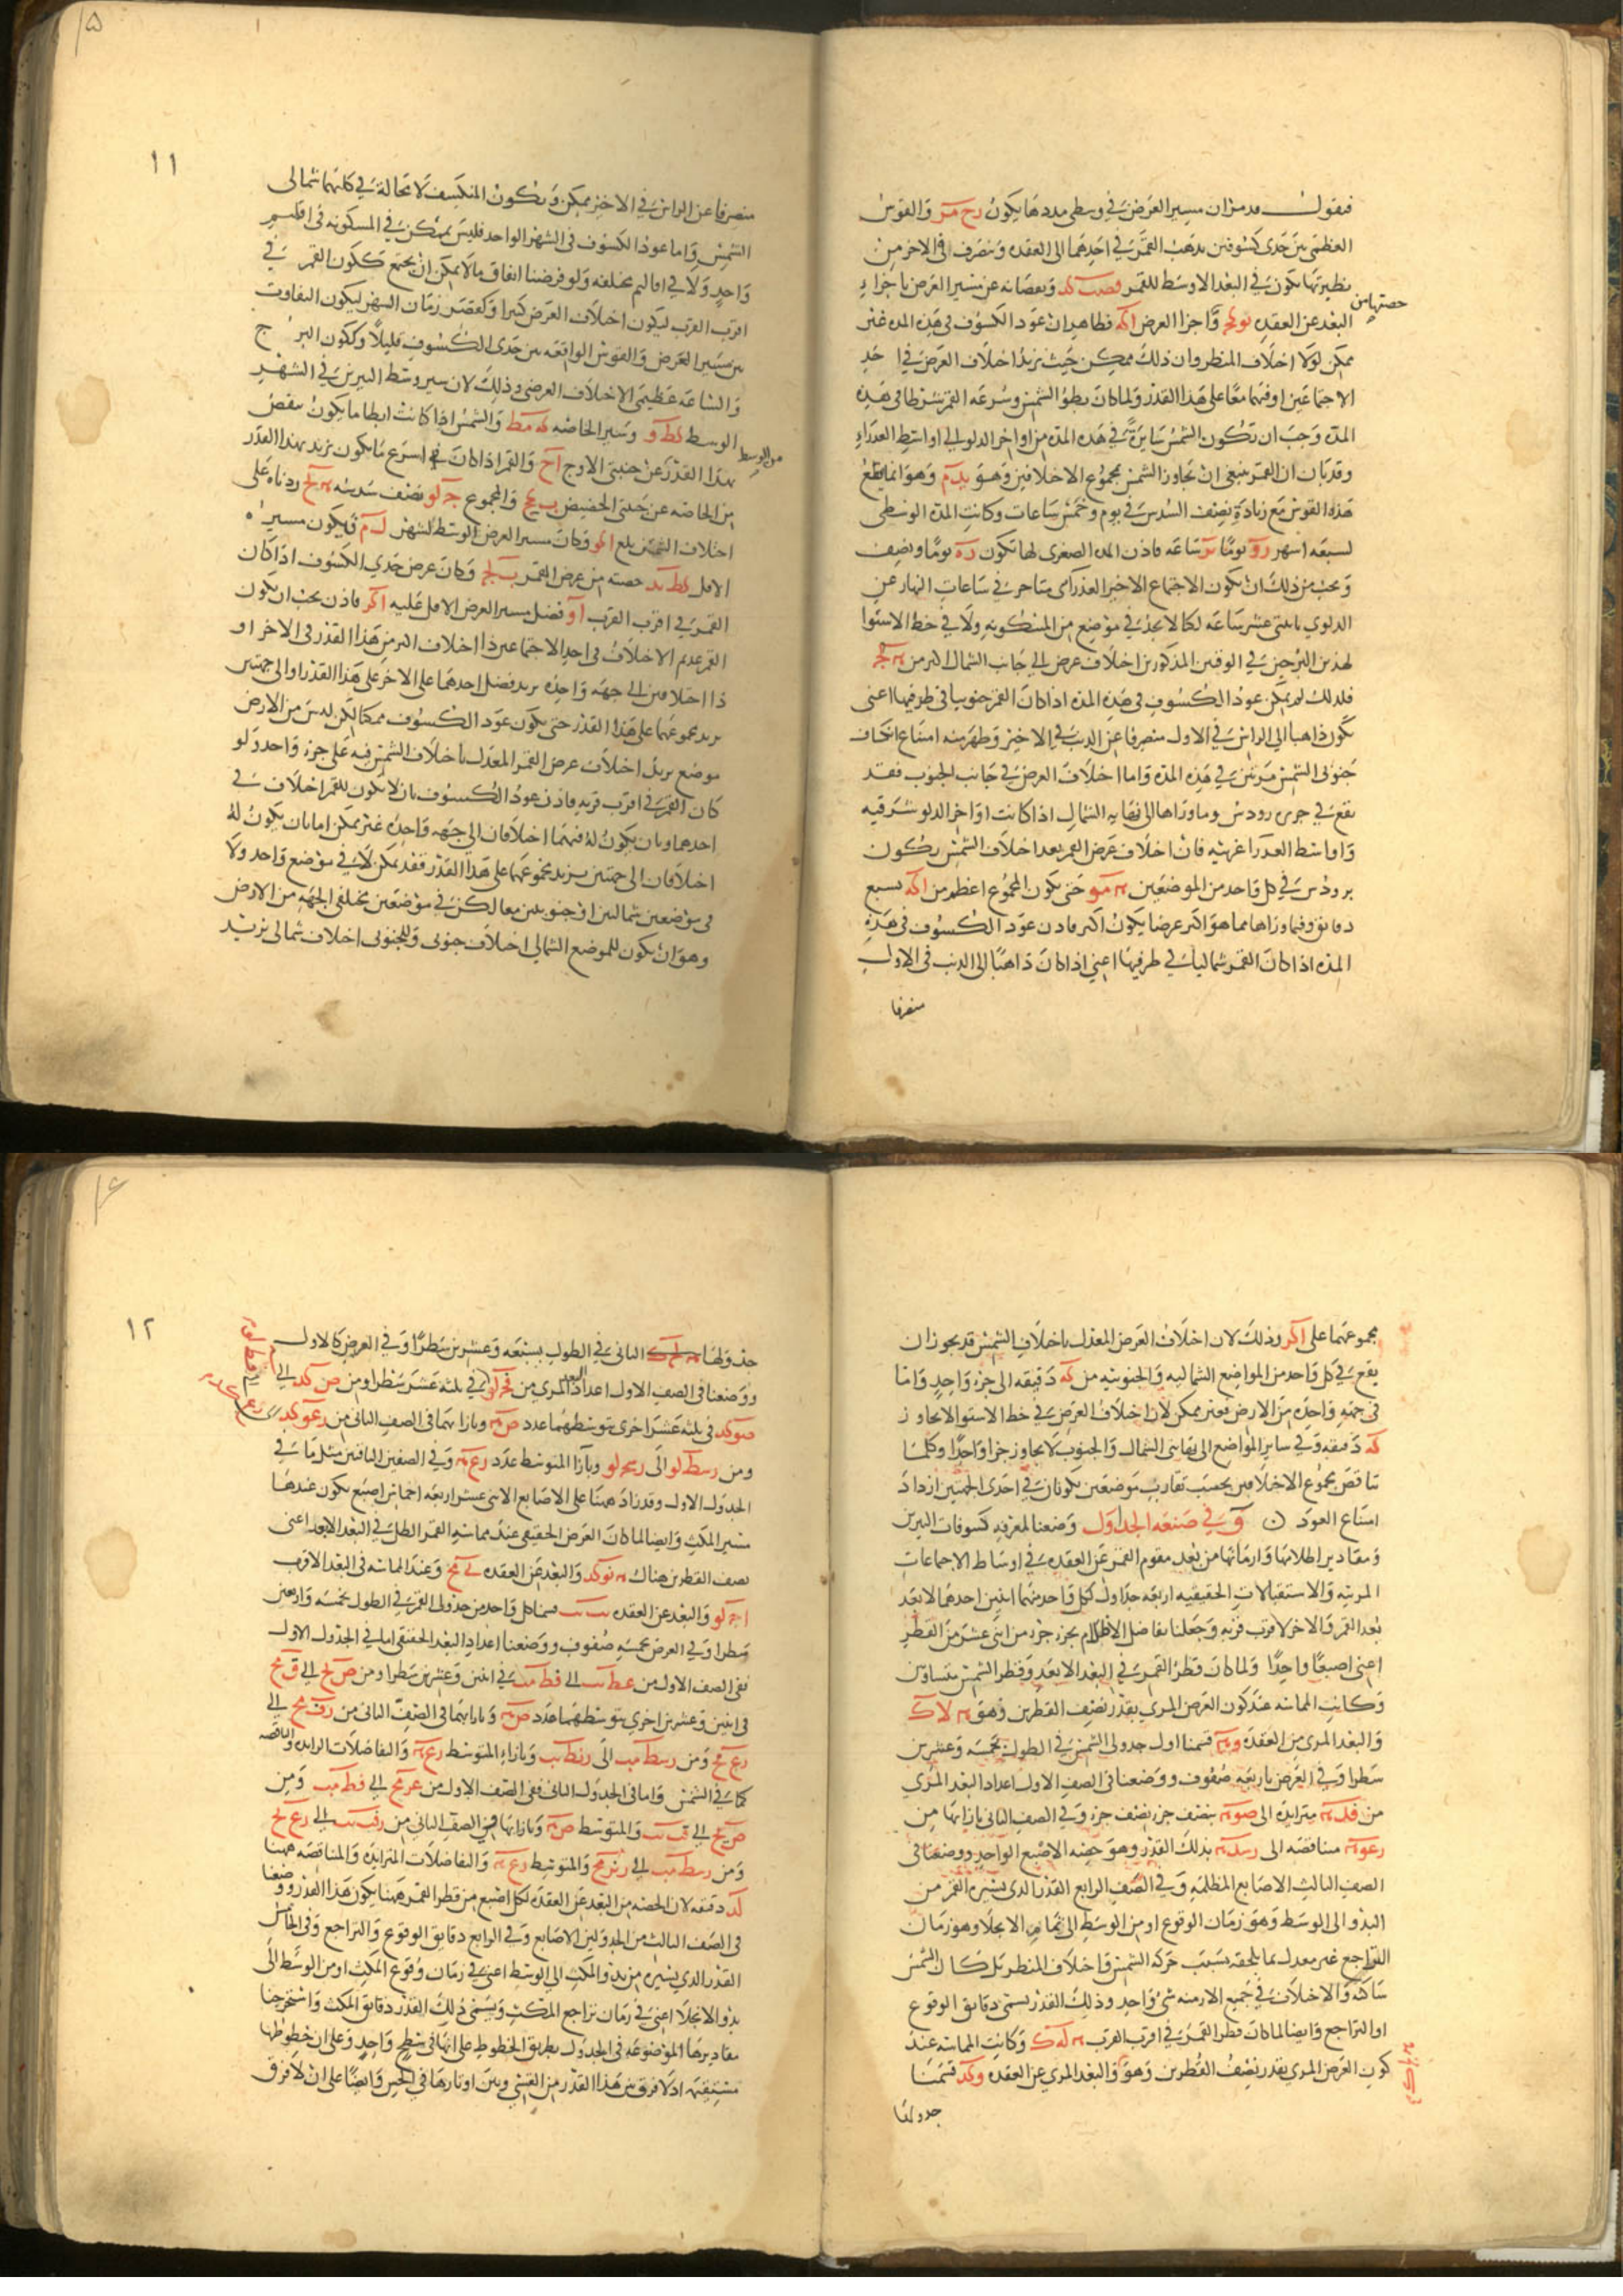 فنقول قد مر ان مسير العرض في وسطى مددها يكون رح مر والقوس
العظمى بين حدى كسوفين يذهب القمر في احدهما الى العقده وينصرف في الاخر من
نظيرتها يكون في البعد الاوسط للقمر قصب كد ونقصانه عن مسير العرض باجزاء
حصتها من
البعد عن العقده واجزا العرض اكه فظاهر ان عود الكسوف في هذه المده غير
ممكن لولا اختلاف المنظر وان ذلك ممكن حيث يزيد اختلاف العرض في احد
الاجتماعين او فيهما معا على هذا القدر ولما كان بطؤ الشمس وسرعه القمر شرطا في هذه
المدة وجب ان تكون الشمس سايرة في هذه المدة من اواخر الدلو الى اواسط العذراء
وقد بان ان القمر ينبغي ان تجاوز الشمس بمجموع الاختلافين وهو يد م وهو انما يقطع
هذه القوس مع زيادة نصف السدس في يوم وخمس ساعات وكانت المدة الوسطى
لسبعه اشهر رو يوما ساعه فاذن المده الصغرى لها تكون ره يوما ونصف
ويجب من ذلك ان يكون الاجتماع الاخير العذرائى متاخر في ساعات النهار عن
الدلوي باثنتى عشر ساعه لكنا لا نجد في موضع من المسكونه ولا في خط الاستوا
لهذين البرجين في الوقتين المذكورين اختلاف عرض الى جانب الشمال اكثر من
فلذلك لم يمكن عود الكسوف في هذه المده اذا كان القمر جنوبيا في طرفيها اعنى
يكون ذاهبا الى الراس في الاول منصرفا عن الذنب في الاخير وظهر منه امتناع انكساف
جنوبى الشمس مرتين في هذه المدة واما اختلاف العرض في جانب الجنوب فقد
يقع في جزيرة رودس وما وراها الى نهايه الشمال اذا كانت اواخر الدلو شرقيه
واواسط العذرا غربيه فان اختلاف عرض القمر بعد اختلاف الشمس يكون
برودس في كل واحد من الموضعين مو حتى يكون المجموع اعظم من اكه بسبع
دقايق وفيما وراها مما هو اكثر عرضا يكون اكثر فاذن عود الكسوف في هذه
المده اذا كان القمر شماليا في طرفيها اعني اذا كان ذاهبا الى الذنب في الاول
منصرفا
١١
منصرفا عن الراس في الاخير ممكن ويكون المنكسف لا محالة في كليهما شمالى
الشمس واما عود الكسوف في الشهر الواحد فليس بممكن في المسكونه في اقليم
واحد ولا في اقاليم مختلفه ولو فرضنا اتفاق ما لا يمكن ان يجتمع ككون القمر في
اقرب القرب ليكون اختلاف العرض كبيرا وكقصر زمان الشهر ليكون التفاوت
بين مسير العرض والقوس الواقعه بين حدى الكسوف قليلا وككون البرج
والساعه عظيمى الاختلاف العرضى وذلك لان سير وسط النيرين في الشهر
من الوسط
الوسط كط و وسير الخاصه كه مط والشمس اذا كانت ابطا ما يكون ينقص
بهذا القدر عن جنبتى الاوج اح والقمر اذا كان في اسرع ما يكون يزيد بهذا القدر
من الخاصه عن جنبتى الحضيض ب كح والمجموع ج لو نصف سدسه زدناه على
اختلاف الشمس بلغ اكو وكان مسير العرض الوسط للشهر ل م فيكون مسيره
الاقل كط كد حصته من عرض القمر ب لح وكان عرض حدي الكسوف اذا كان
القمر في اقرب القرب او فضل مسير العرض الاقل عليه اكز فاذن يجب ان يكون
القمر عديم الاختلاف في احد الاجتماعين ذا اختلاف اكثر من هذا القدر في الاخر او
ذا اختلافين الى جهه واحده يزيد فضل احدهما على الاخر على هذا القدر او الى جهتين
يزيد مجموعهما على هذا القدر حتى يكون عود الكسوف ممكنا لكن ليس من الارض
موضع يزيد اختلاف عرض القمر المعدل باختلاف الشمس فيه على جزء واحد ولو
كان القمر في اقرب قربه فاذن عود الكسوف بان لا يكون للقمر اختلاف في
احدهما وبان يكون له فيهما اختلافان الى جهه واحده غير ممكن اما بان يكون له
اختلافان الى جهتين يزيد مجموعهما على هذا القدر فقد يمكن لا في موضع واحد ولا
في موضعين شماليين او جنوبيين معا لكن في موضعين مختلفى الجهه من الارض
وهو ان يكون للموضع الشمالي اختلاف جنوبى وللجنوبى اختلاف شمالى يزيد
مجموعهما على اكز وذلك لان اختلاف العرض المعدل باختلاف الشمس قد يجوز ان
يقع في كل واحد من المواضع الشماليه والجنوبيه من كه دقيقه الى جزء واحد واما
في جهه واحده من الارض فغير ممكن لان اختلاف العرض في خط الاستوا لا يجاوز
كه دقيقه وفي ساير المواضع الى نهايتى الشمال والجنوب لا يجاوز جزا واحدا وكلما
تناقص مجموع الاختلافين بحسب تقارب موضعين يكونان في احدى الجهتين ازداد
امتناع العود و في صنعه الجداول وضعنا لمعرفه كسوفات النيرين
ومقادير اظلالها وازمانها من بعد مقوم القمر عن العقده في اوساط الاجتماعات
المرئيه والاستقبالات الحقيقيه اربعه جداول لكل واحد منهما اثنين احدهما لابعد
بعد القمر والاخر لاقرب قربه وجعلنا تفاضل الاظلام بجزء جزء من اثنى عشر من القطر
اعنى اصبعا واحدا ولما كان قطر القمر في البعد الابعد وقطر الشمس متساويين
وكانت المماسه عند كون العرض المرى بقدر نصف القطرين وهو لا ك
والبعد المرى من العقده قسمنا اول جدولى الشمس في الطول بخمسه وعشرين
سطرا وفي العرض باربعه صفوف ووضعنا في الصف الاول اعداد البعد المرى
من فد متزايدة الى صو بنصف جزء نصف جزء وفي الصف الثانى بازايها من
رعو متناقصه الى رسد بذلك القدر وهو حصه الاصبع الواحد ووضعنا في
الصف الثالث الاصابع المظلمه وفي الصف الرابع القدر الذى يسيره القمر من
البدو الى الوسط وهو زمان الوقوع او من الوسط الى تمام الانجلا وهو زمان
التراجع غير معدل بما يلحقه بسبب حركه الشمس واختلاف المنظر بل كان الشمس
ساكنه والاختلاف في جميع الازمنه شى واحد وذلك القدر يسمى دقايق الوقوع
او التراجع وايضا لما كان قطر القمر في اقرب القرب له ك وكانت المماسه عند
كون العرض المرى بقدر نصف القطرين وهو والبعد المرى عن العقده وكد قسمنا
جدولها
١٢
جدولها الثانى في الطول بسبعه وعشرين سطرا وفي العرض كالاول
ووضعنا في الصف الاول اعداد البعد المرى من فج لو في ثلثه عشر سطرا ومن ص كد الى
صو كد في ثلثه عشر اخرى يتوسطهما عدد ص وبازايهما في الصف الثانى من رعو كد
ومن رسط لو الى رسح لو وبازا المتوسط عدد رع وفي الصفين الباقيين مثل ما في
الجدول الاول وقد زاد ههنا على الاصابع الاثنى عشر اربعه اخماس اصبع يكون عندها
مسير المكث وايضا لما كان العرض الحقيقى عند مماسه القمر الظل في البعد الابعد اعنى
نصف القطرين هناك نو كد والبعد عن العقده مح وعند المماسه في البعد الاقرب
ا ج لو والبعد عن العقده قسمنا كل واحد من جدولى القمر في الطول بخمسه واربعين
سطرا وفي العرض بخمسه صفوف ووضعنا اعداد البعد الحقيقى اما في الجدول الاول
ففى الصف الاول من عط الى فط في اثنين وعشرين سطرا ومن ص لح الى ق مح
في اثنين وعشرين اخرى يتوسطهما عدد ص وبازايهما في الصف الثانى من رف مح الى
رع مح ومن رسط مب الى رنط مب وبازاء المتوسط رع والتفاضلات الزايده والناقصه
كما في الشمس واما في الجدول الثانى ففى الصف الاول من عز مح الى فط مب ومن
ص مح الى قب والمتوسط ص وبازايها في الصف الثانى من رفب الى رع لح
ومن رسط مب الى رنز مح والمتوسط رع والتفاضلات المتزايده والمتناقصه ههنا
لد دقيقه لان الحصه من البعد عن العقده لكل اصبع من قطر القمر ههنا يكون هذا القدر ووضعنا
في الصف الثالث من الجدولين الاصابع وفي الرابع دقايق الوقوع والتراجع وفي الخامس
القدر الذى يسيره من بدو المكث الى الوسط اعنى في زمان وقوع المكث او من الوسط الى
بدو الانجلا اعنى في زمان تراجع المكث ويسمى ذلك القدر دقايق المكث واستخرجنا
مقاديرها الموضوعه في الجدول بطريق الخطوط على انها في سطح واحد وعلى ان خطوطها
مستقيمه اذ لا فرق بين هذا القدر من القسى وبين اوتارها في الحس وايضا على ان لا فرق